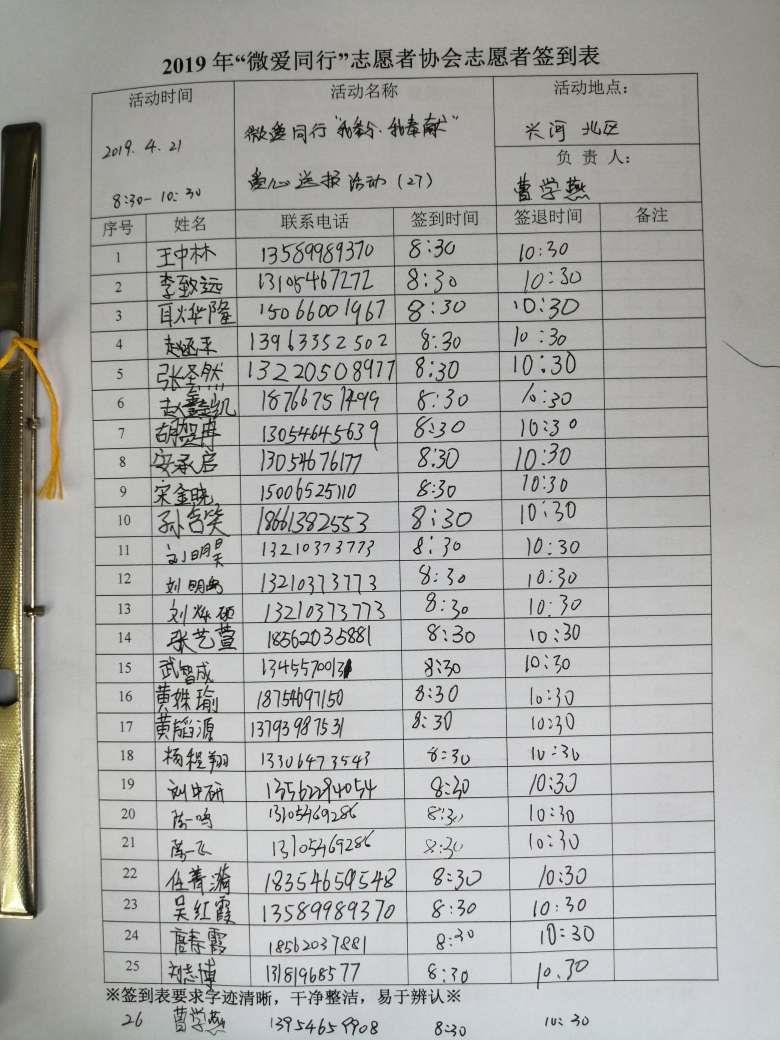 2019年“微爱同行”志愿者协会志愿者签到表
活动时间 活动名称 活动地点:
2019.4.21 微爱同行"我参与、我奉献" 兴河 北区
负责人:
8:30-10:30 爱心送报活动(27) 曹学燕
序号 姓名 联系电话 签到时间 签退时间 备注
1 王中林 13589989370 8:30 10:30
2 李致远 13105467272 8:30 10:30
3 耿华隆 15066001967 8:30 10:30
4 13963352502 8:30 10:30
5 张圣然 13220508977 8:30 10:30
6 赵鑫凯 18766751499 8:30 10:30
7 胡贺冉 13054645639 8:30 10:30
8 安承启 13054676177 8:30 10:30
9 宋金晓 15006525110 8:30 10:30
10 孙含笑 18661382553 8:30 10:30
11 刘明昊 13210373773 8:30 10:30
12 刘明 13210373773 8:30 10:30
13 刘烁硕 13210373773 8:30 10:30
14 张艺萱 18562035881 8:30 10:30
15 武智成 8:30 10:30
16 黄姝瑜 18754697150 8:30 10:30
17 黄韬源 13793987531 8:30 10:30
18 杨程翔 13306473543 8:30 10:30
19 刘中研 13562294054 8:30 10:30
20 陈一鸣 13105469286 8:30 10:30
21 陈一飞 13105469286 8:30 10:30
22 任菁漪 18354659548 8:30 10:30
23 吴红霞 13589989370 8:30 10:30
24 唐春霞 18562037881 8:30 10:30
25 刘志博 13181968577 8:30 10.30
※签到表要求字迹清晰,干净整洁,易于辨认※
26 曹学燕 13954659908 8:30 10:30